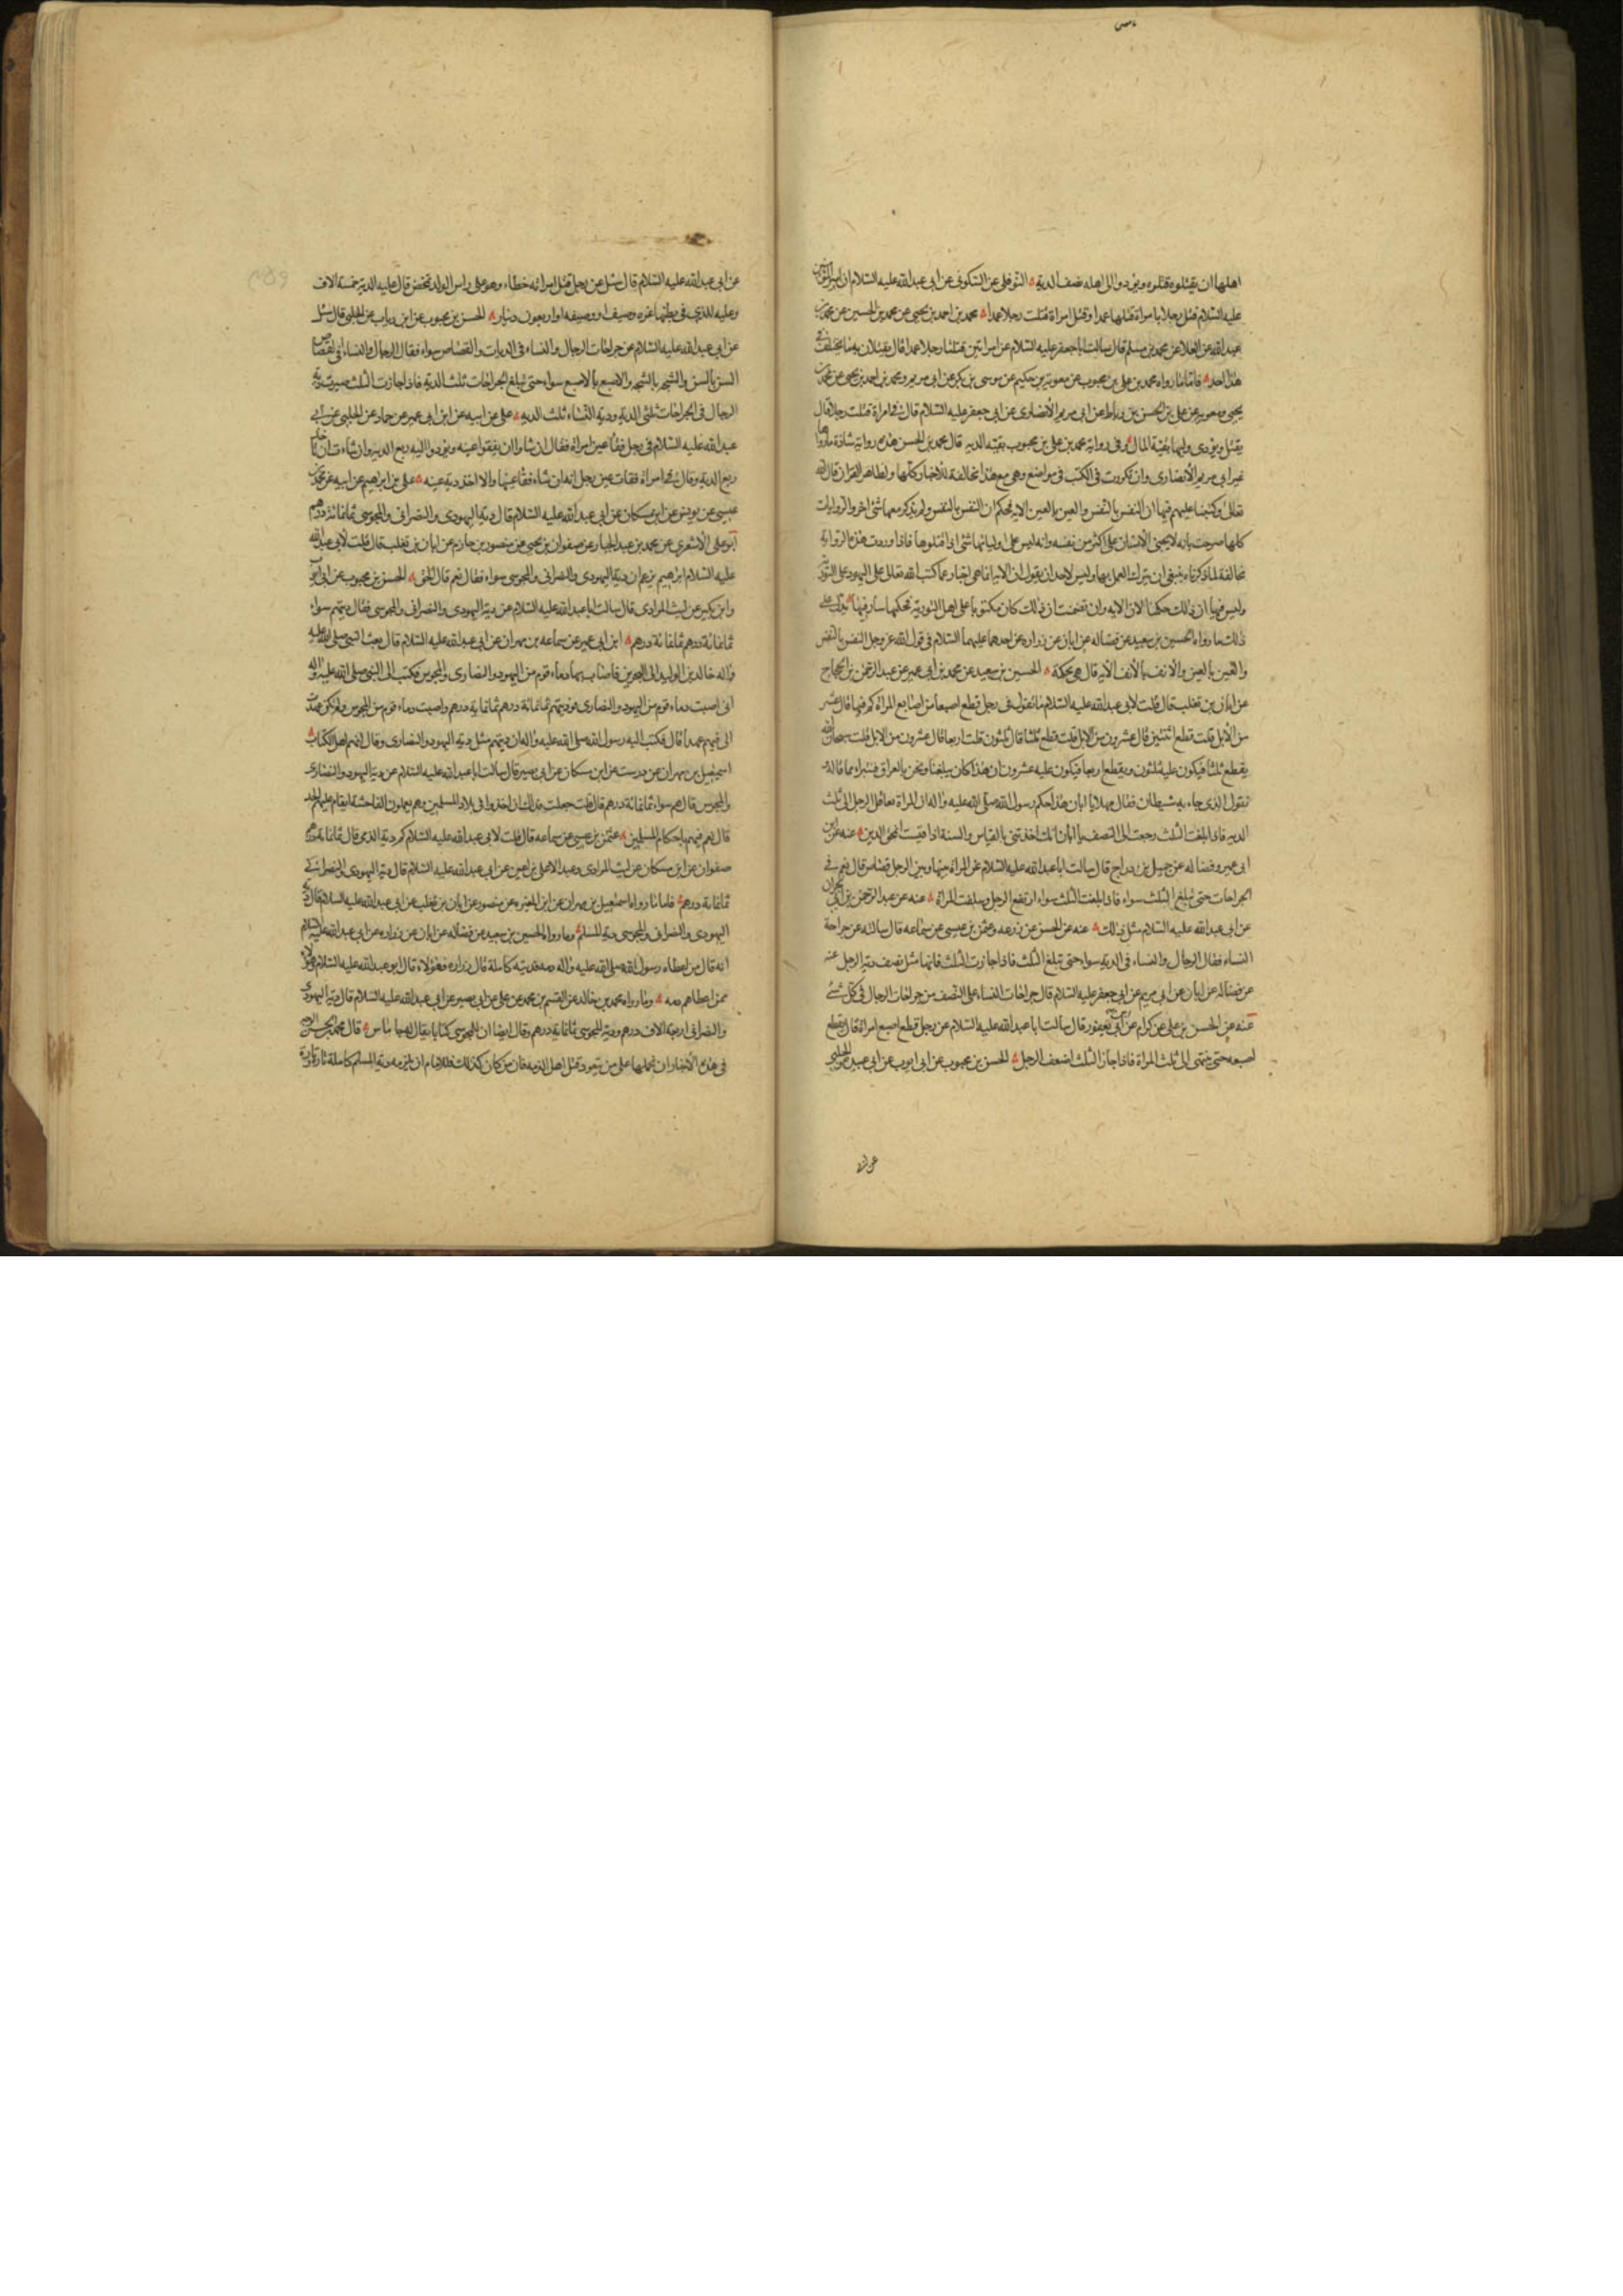 اهلها ان يقتلوه قتلوه ويؤدوا الى اهله نصف الدية النوفلى عن السكونى عن ابى عبدالله عليه السلام ان امير المؤمنين
عليه السلام قتل رجلا بامراة قتلها عمدا وقتل امراة قتلت رجلا عمدا محمد بن احمد بن يحيى عن محمد بن الحسين عن محمد بن
عبدالله عن العلا عن محمد بن مسلم قال سالت اباجعفر عليه السلام عن امراتين قتلتا رجلا عمدا قال يقتلان به ما يختلف فى
هذا احد فاما ما رواه محمد بن على بن محبوب عن معوية بن حكيم عن موسى بن بكر عن ابى مريم ومحمد بن احمد بن يحيى عن محمد بن
يحيى ومعوية عن على بن الحسن بن رباط عن ابى مريم الأنصارى عن ابى جعفر عليه السلام قال فى امراة قتلت رجلا قال
يقتل ويؤدى وليها بقية المال وفى رواية محمد بن على بن محبوب بقية الدية قال محمد بن الحسن هذه رواية شاذة ما رواها
غير ابى مريم الأنصارى وان تكررت فى الكتب فى مواضع وهى مع هذا مخالفة للأخبار كلها ولظاهر القران قال الله
تعالى وكتبنا عليهم فيها ان النفس بالنفس والعين بالعين الاية فحكم ان النفس بالنفس ولم يذكر معها شئ اخر والروايات
كلها صرحت بانه لا يجنى الانسان على اكثر من نفسه وانه ليس على اوليائها شئ اذا قتلوها فاذا وردت هذه الرواية
مخالفة لما ذكرناه ينبغى ان يترك العمل بها وليس لاحد ان يقول ان الاية انما هى اخبار عما كتب الله تعالى على اليهود فى التورية
وليس فيها ان ذلك حكمنا لان الاية وان تضمنت ان ذلك كان مكتوبا على اهل التورية فحكمها سار فينا يدل على
ذلك ما رواه الحسين بن سعيد عن فضالة عن ابان عن زرارة عن احدهما عليهما السلام فى قول الله عز وجل النفس بالنفس
والعين بالعين والانف بالأنف الاية قال هى محكمة الحسين بن سعيد عن محمد بن ابى عمير عن عبد الرحمن بن الحجاج
عن ابان بن تغلب قال قلت لابى عبدالله عليه السلام ما تقول فى رجل قطع اصبعا من اصابع المراة كم فيها قال عشر
من الأبل قلت قطع اثنتين قال عشرون من الابل قلت قطع ثلثا قال ثلثون قلت اربعا قال عشرون من الابل قلت سبحان الله
يقطع ثلثا فيكون عليه ثلثون ويقطع اربعا فيكون عليه عشرون ان هذا كان يبلغنا ونحن بالعراق فنبرا مما قاله
نقول الذى جاء به شيطان فقال مهلا يا ابان هذا حكم رسول الله صلى الله عليه واله ان المراة تعاقل الرجل الى ثلث
الدية فاذا بلغت الثلث رجعت الى النصف يا ابان انك اخذتنى بالقياس والسنة اذا قيست انمحق الدين عنه عن ابن
ابى عمير وفضالة عن جميل بن دراج قال سالت ابا عبدالله عليه السلام عن المراة بينها وبين الرجل قصاص قال نعم فى
الجراحات حتى تبلغ الثلث سواء فاذا بلغت الثلث سواء ارتفع الرجل وسفلت المراة عنه عن عبد الرحمن بن ابى نجران
عن ابى عبدالله عليه السلام مثل ذلك عنه عن الحسن عن زرعة وعثمن بن عيسى عن سماعة قال سالته عن جراحة
النساء فقال الرجال والنساء فى الدية سواء حتى تبلغ الثلث فاذا جازت الثلث فانها مثل نصف دية الرجل عنه
عن فضالة عن ابان عن ابى مريم عن ابى جعفر عليه السلام قال جراحات النساء على النصف من جراحات الرجال فى كل شئ
عنه عن الحسن بن على عن كرام عن ابن ابى يعفور قال سالت ابا عبدالله عليه السلام عن رجل قطع اصبع امراة قال يقطع
اصبعه حتى ينتهى الى ثلث المراة فاذا جاز الثلث اضعف الرجل الحسن بن محبوب عن ابى ايوب عن ابى عبيدة والحلبى
عن ابى عبد الله عليه السلام قال سئل عن رجل قتل امراته خطاء وهو على راس الولد تمخض قال عليه الدية خمسة الاف
وعليه للذى فى بطنها غرة وصيف او وصيفة او اربعون دينار الحسن بن محبوب عن ابن رياب عن الحلبى قال سئل
عن ابى عبدالله عليه السلام عن جراحات الرجال والنساء فى الديات والقصاص سواء فقال الرجال والنساء فى القصاص
السن بالسن والشجة بالشجة والاصبع بالاصبع سواء حتى تبلغ الجراحات ثلث الدية فاذا جازت الثلث صيرت دية
الرجال فى الجراحات ثلثى الدية ودية النساء ثلث الدية على عن ابيه عن ابن ابى عمير عن حماد عن الحلبى عن ابى
عبد الله عليه السلام فى رجل فقأ عين امراة فقال ان شاوا ان يفقوا عينه ويؤدوا اليه ربع الدية وان شاءت ان تاخذ
ربع الدية وقال فى امراة فقات عين رجل انه ان شاء فقا عينها والا اخذ دية عينه على بن ابراهيم عن ابيه عن محمد بن
عيسى عن يونس عن ابن مسكان عن ابى عبدالله عليه السلام قال دية اليهودى والنصرانى والمجوسى ثمانمائة درهم
ابو على الأشعرى عن محمد بن عبد الجبار عن صفوان بن يحيى عن منصور بن حازم عن ابان بن تغلب قال قلت لأبى عبدالله
عليه السلام ابراهيم يزعم ان دية اليهودى والنصرانى والمجوسى سواء فقال نعم قال الحق الحسن بن محبوب عن ابى ايوب
وابن بكير عن ليث المرادى قال سالت ابا عبدالله عليه السلام عن دية اليهودى والنصرانى والمجوسى فقال ديتهم سواء
ثمانمائة درهم ثمانمائة درهم ابن ابى عمير عن سماعة بن مهران عن ابى عبدالله عليه السلام قال بعث النبى صلى الله عليه
واله خالد بن الوليد الى البحرين فاصاب بها دماء قوم من اليهود والنصارى والمجوس فكتب الى النبى صلى الله عليه واله
انى اصبت دماء قوم من اليهود والنصارى فوديتهم ثمانمائة درهم ثمانماية درهم واصبت دماء قوم من المجوس ولم تكن عهدت
الى فيهم عهدا قال فكتب اليه رسول الله صلى الله عليه واله ان ديتهم مثل دية اليهود والنصارى وقال انهم اهل الكتاب
اسمعيل بن مهران عن درست عن ابن مسكان عن ابى بصير قال سالت ابا عبدالله عليه السلام عن دية اليهود والنصارى
والمجوس قال هم سواء ثمانمائة درهم قال قلت جعلت فداك ان اخذوا فى بلاد المسلمين وهم يعملون الفاحشة ايقام عليهم الحد
قال نعم فيهم باحكام المسلمين عثمن بن عيسى عن سماعة قال قلت لابى عبدالله عليه السلام كم دية الذمى قال ثمانمائة درهم
صفوان عن ابن مسكان عن ليث المرادى وعبد الاعلى بن اعين عن ابى عبدالله عليه السلام قال دية اليهودى والنصرانى
ثمانمائة درهم فاما ما رواه اسمعيل بن مهران عن ابن المغيرة عن منصور عن ابان بن تغلب عن ابى عبدالله عليه السلام قال دية
اليهودى والنصرانى والمجوسى دية المسلم وما رواه الحسين بن سعيد عن فضالة عن ابان عن زرارة عن ابى عبدالله عليه السلام
انه قال من اعطاه رسول الله صلى الله عليه واله ذمة فديته كاملة قال زرارة فهؤلاء قال ابو عبدالله عليه السلام وهؤلاء
ممن اعطاهم ذمة وما رواه محمد بن خالد عن القسم بن محمد عن على عن ابى بصير عن ابى عبدالله عليه السلام قال دية اليهودى
والنصرانى اربعة الاف درهم ودية المجوسى ثمانماية درهم وقال ايضا ان للمجوسى كتابا يقال له جاماس قال محمد بن الحسن الوجه
فى هذه الأخبار ان نحملها على من يتعود قتل اهل الذمة فان من كان كذلك فللامام ان يلزمه دية المسلم كاملة تارة